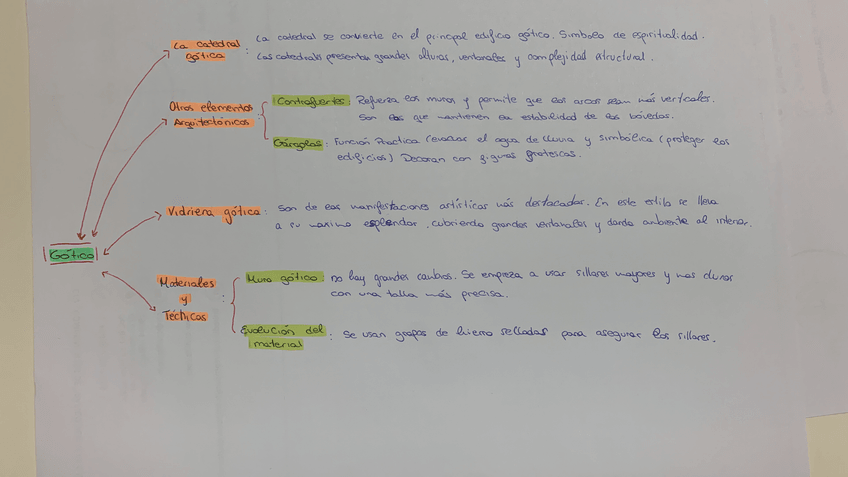 La catedral gótica : La catedral se convierte en el principal edificio gótico. Símbolo de espiritualidad.
Las catedrales presentan grandes alturas, ventanales y complejidad estructural.
Otros elementos Arquitectónicos
Contrafuertes : Refuerza los muros y permite que los arcos sean más verticales.
Son los que mantienen la estabilidad de las bóvedas.
Gárgolas : Función Practica (evacuar el agua de lluvia y simbólica (proteger los
edificios) Decoran con figuras grotescas.
Vidriera gótica : Son de las manifestaciones artísticas más destacadas. En este estilo se lleva
a su maximo esplendor, cubriendo grandes ventanales y dando ambiente al interior.
Gótico
Materiales
y
Técnicos :
Muro gótico : no hay grandes cambios. Se empieza a usar sillares mayores y mas duros
con una talla más precisa.
Evolución del
material : Se usan grapas de hierro selladas para asegurar los sillares.